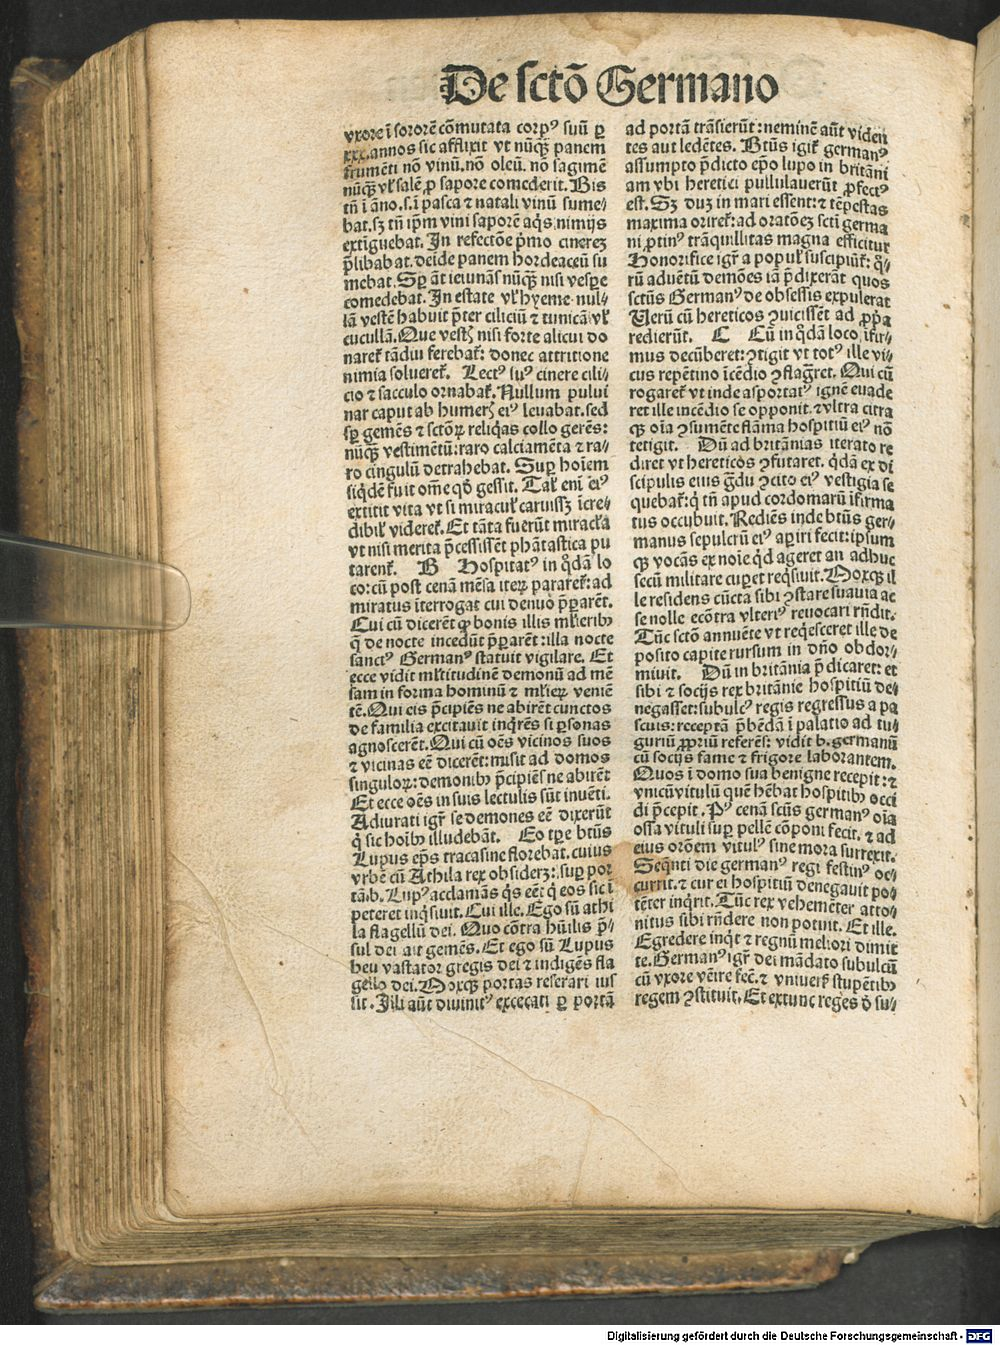 De sctō Germano
vxore ī sororē cōmutata corpꝰ suū ꝑ
xxx.annos sic afflixit vt nūqꝫ panem
frumēti nō vinū.nō oleū. nō sagimē
nūqꝫ vł salē ꝓ sapore comederit. Bis
tn̄ ī āno.s.ī pasca ⁊ natali vinū sume⸗
bat.sꝫ tn̄ ipm̄ vini saporē aq̄s nimijs
extīguebat. In refectōe p̄mo cinereꝫ
p̄libabat.deīde panem hordeaceū su
mebat. Sꝑ āt ieiunās nūqꝫ nisi vesꝑe
comedebat. In estate vł hyeme nul⸗
lā vestē habuit p̄ter ciliciū ⁊ tunicā vł
cucullā. Que vestꝫ nisi forte alicui do
naret̄ tādiu ferebat̄: donec attritione
nimia solueret̄. Lectꝰ suꝰ cinere cili⸗
cio ⁊ sacculo ornabat̄. Nullum pului
nar caput ab humerꝭ eiꝰ leuabat.sed
sꝑ gemēs ⁊ sctōꝝ reliq̄as collo gerēs:
nūqꝫ vestimētū: raro calciamēta ⁊ ra⸗
ro cingulū detrahebat. Suꝑ hoīem
siq̄dē fuit om̄e qd̄ gessit. Tał eni eiꝰ
extitit vita vt si miracuł caruissꝫ īcre⸗
dibił videret̄. Et tāta fuerūt miracła
vt nisi merita p̄cessissēt phātastica pu
tarent̄. B Hospitatꝰ in q̄dā lo
co: cū post cenā mēsa iteꝝ pararet̄: ad
miratus īterrogat cui denuo p̄pararēt.
Cui cū dicerēt ꝙ bonis illis młieribꝰ
q̄ de nocte incedūt p̄pararēt: illa nocte
sanctꝰ Germanꝰ statuit vigilare. Et
ecce vidit młtitudinē demonū ad mē
sam in forma hominū ⁊ młieꝝ veniē
tē. Qui eis p̄cipiēs ne abirēt cunctos
de familia excitauit inq̄rēs si ꝑsonas
agnoscerēt. Qui cū oēs vicinos suos
⁊ vicinas eē dicerēt: misit ad domos
singuloꝝ: demonibꝰ p̄cipiēs ne abirēt
Et ecce oēs in suis lectulis sūt inuēti.
Adiurati igr̄ se demones eē dixerūt
q̇ sic hoībꝰ illudebāt. Eo tꝑe btūs
Lupus ep̄s tracasine florebat. cuius
vrbē cū Athila rex obsideꝫ: suꝑ por
tā.b. Lupꝰ acclamās q̇s eēt q̇ eos sic ī
peteret inq̄siuit. Cui ille. Ego sū athi
la flagellū dei. Quo cōtra hūilis p̄⸗
sul dei ait gemēs. Et ego sū Lupus
heu vastator gregis dei ⁊ indigēs fla
gello dei. Moxqꝫ portas reserari ius
sit. Illi aūt diuinitꝰ excecati ꝑ portā
ad portā trāsierūt: neminē aūt viden
tes aut ledētes. Btūs igit̄ germanꝰ
assumpto p̄dicto ep̄o lupo in britāni
am vbi heretici pullulauerūt ꝓfectꝰ
est. Sꝫ duꝫ in mari essent: ⁊ tēpestas
maxima oriret̄: ad oratōeꝫ scti germa
ni ꝓtinꝰ trāquillitas magna efficitur
Honorifice igr̄ a popuł suscipiūt̄: q̄⸗
rū aduētū demōes iā p̄dixerāt quos
sctūs Germanꝰ de obsessis expulerat
Verū cū hereticos ꝯuicissēt ad ꝓpͥa
redierūt. C Cū in q̄dā loco īfir⸗
mus decūberet: ꝯtigit vt totꝰ ille vi⸗
cus repētino īcēdio ꝯflagͣret. Qui cū
rogaret̄ vt inde asportatꝰ ignē euade
ret ille incēdio se opponit. ⁊ vltra citra
qꝫ oīa ꝯsumēte flāma hospitiū eiꝰ nō
tetigit. Dū ad britānias iterato re
diret vt hereticos ꝯfutaret. q̄dā ex di
scipulis eius gͣdu ꝯcito eiꝰ vestigia se
quebat̄: q̇ tn̄ apud cordomarū īfirma
tus occubuit. Rediēs inde btūs ger⸗
manus sepulcrū eiꝰ aꝑiri fecit: ipsum
qꝫ vocās ex noīe qd̄ ageret an adhuc
secū militare cuꝑet req̄siuit. Moxqꝫ il
le residens cūcta sibi ꝯstare suauia ac
se nolle ecōtra vlteriꝰ reuocari rn̄dit.
Tūc sctō annuēte vt req̄esceret ille de
posito capite rursum in dn̄o obdor⸗
miuit. Dū in britānia p̄dicaret: et
sibi ⁊ socijs rex britānie hospitiū de⸗
negasset: subulcꝰ regis regressus a pa
scuis: receptā p̄bēdā ī palatio ad tu⸗
guriū ꝓpriū referēs: vidit b. germanū
cū socijs fame ⁊ frigore laborantem.
Quos ī domo sua benigne recepit: ⁊
vnicū vitulū quē hēbat hospitibꝰ occi
di p̄cepit. Pꝰ cenā scūs germanꝰ oīa
ossa vituli suꝑ pellē cōponi fecit. ⁊ ad
eius orōem vitulꝰ sine mora surrexit.
Seq̄nti die germanꝰ regi festinꝰ oc⸗
currit. ⁊ cur ei hospitiū denegauit po⸗
tēter inq̄rit. Tūc rex vehemēter atto⸗
nitus sibi rn̄dere non potuit. Et ille.
Egredere inqͥt ⁊ regnū meliori dimit
te. Germanꝰ igr̄ dei mādato subulcū
cū vxore vēire fec̄. ⁊ vniuers̄ stupētibꝰ
regem ꝯstituit. Et extunc reges d̄ su⸗
Digitalisierung gefördert durch die Deutsche Forschungsgemeinschaft - DFG